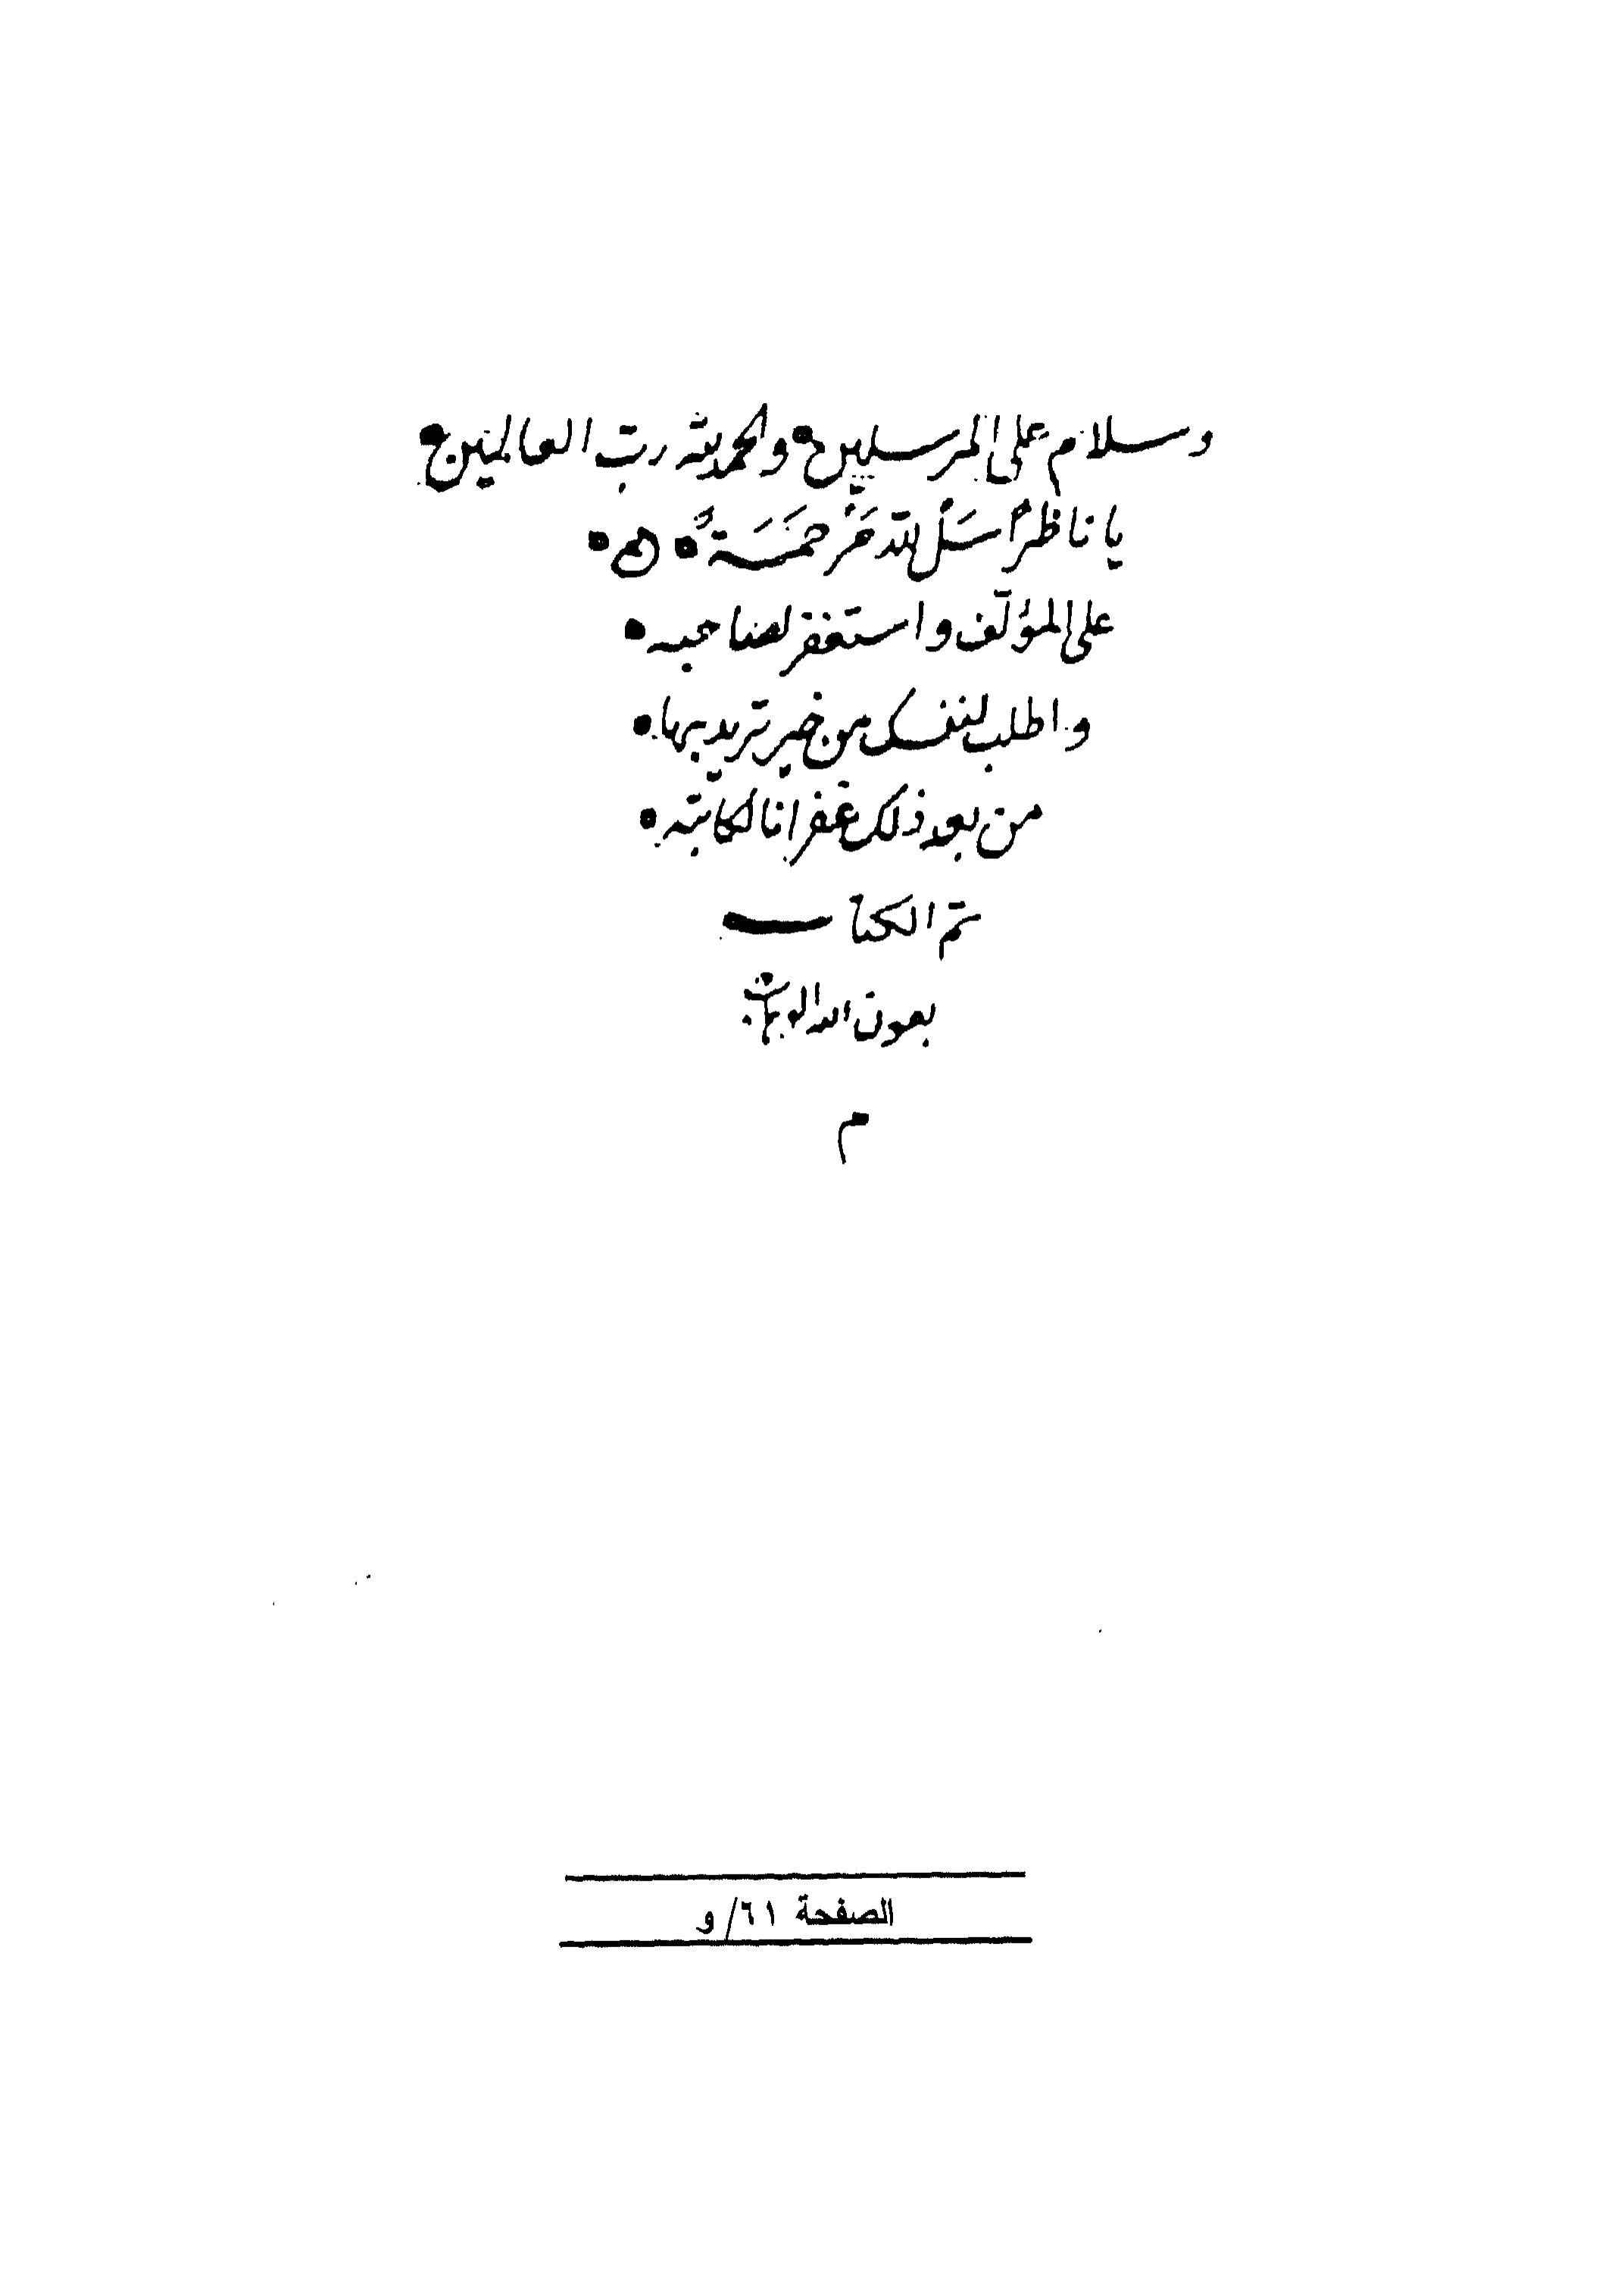 وسلام على المرسلين ه والحمد لله رب العالمين ه
يا ناظرًا سَلْ لِلّه مَرْحَمَةً ه ه ه
على المؤلّف واستغفر لصاحبه ه
واطلب لنفسك من خير تريد بها ه
من بعد ذلك غفرانا لكاتبه ه
تمّ الكتاب
بعون الله الوهاب
م
الصفحة ٦١/و